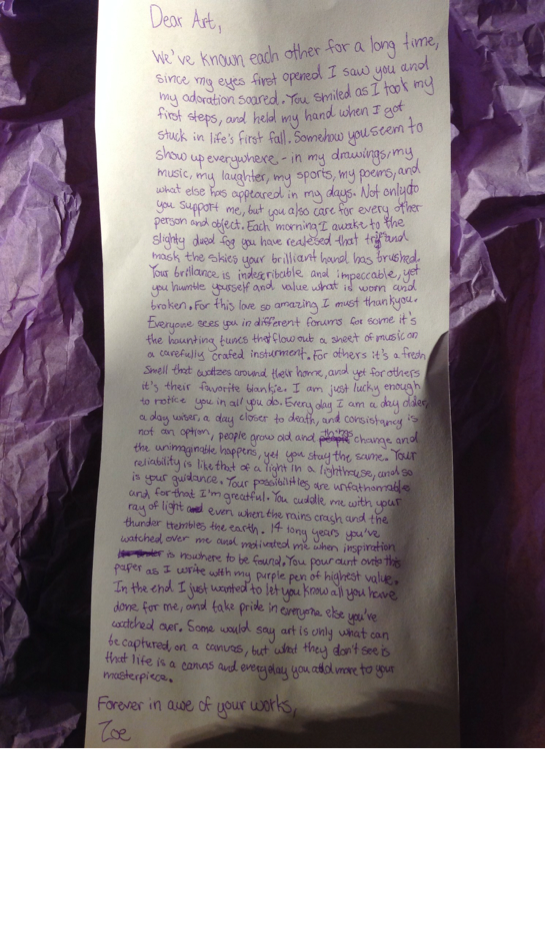 Dear Art,
We've known each other for a long time,
since my eyes first opened I saw you and
my adoration soared. You smiled as I took my
first steps, and held my hand when I got
stuck in life's first fall. Somehow you seem to
show up everywhere - in my drawings, my
music, my laughter, my sports, my poems, and
what else has appeared in my days. Not only do
you support me, but you also care for every other
person and object. Each morning I awake to the
slighty dued fog you have realesed that and
mask the skies your brilliant hand has brushed.
Your brillance is indescribable and impeccable, yet
you humble yourself and value what is worn and
broken. For this love so amazing I must thank you.
Everyone sees you in different forums for some it's
the haunting tunes that flow out a sheet of music on
a carefully crafed insturment. For others it's a fresh
smell that waltzes around their home, and yet for others
it's their favorite blankie. I am just lucky enough
to notice you in all you do. Every day I am a day older,
a day wiser, a day closer to death, and consistancy is
not an option, people grow old and things change and
the unimaginable happens, yet you stay the same. Your
reliability is like that of a light in a lighthouse, and so
is your guidance. Your possibilities are unfathomable
and for that I'm greatful. You cuddle me with your
ray of light even when the rains crash and the
thunder trembles the earth. 14 long years you've
watched over me and motivated me when inspiration
is nowhere to be found. You pour out onto this
paper as I write with my purple pen of highest value.
In the end I just wanted to let you know all you have
done for me, and take pride in everyone else you've
watched over. Some would say art is only what can
be captured on a canvas, but what they don't see is
that life is a canvas and everyday you add more to your
masterpiece.
Forever in awe of your works,
Zoe